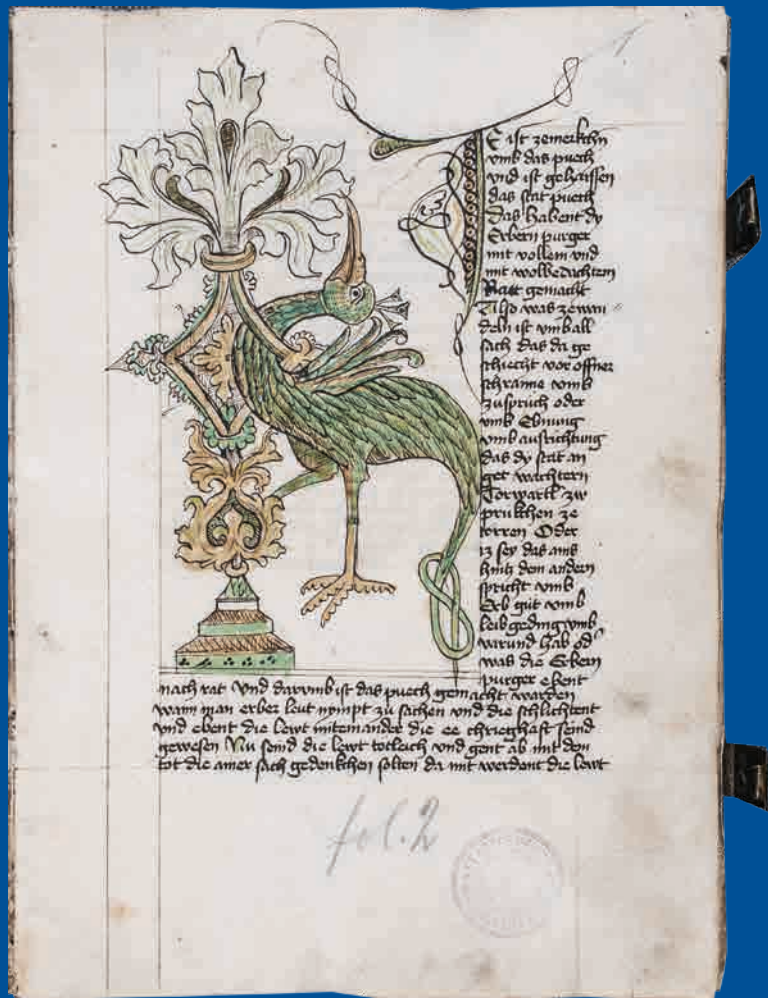 1
E ist zemerkchn
vmb das puech
vnd ist gehaissen
das stat puech
Das habent dy
Erbern purger
mit vollem vnd
mit wolbedachtem
Ratt gemacht
Also was zewan
deln ist vmb all
sach das da ge
schiecht vor offner
schranne vmb
zuspruch oder
vmb Ebnung
vmb ausrichtung
das dy stat an
get wachtern
Torwartl zw
prukchen ze
torren Oder
iz sey das ains
hintz dem andern
spricht vmb
Erb gut vmb
leibgeding vmb
varund hab od
was die Erbern
purger ebent
nach rat Vnd darumb ist das puech gemacht warden
wann man erber leut nympt zu sachen vnd die schlichtent
vnd ebent die lewt miteinander die ee chrieghaft seind
gewesen Nu seind die lewt totleich vnd gent ab mit dem
tot die ainer sach gedenkchen solten da mit werdent die lewt
fol. 2